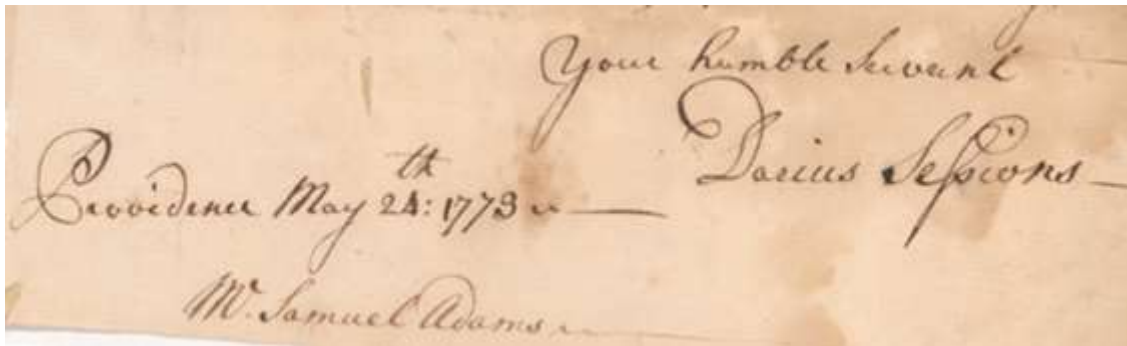 Your humble Servant
Darius Sessions
Providence May 24:th 1773
Mr. Samuel Adams